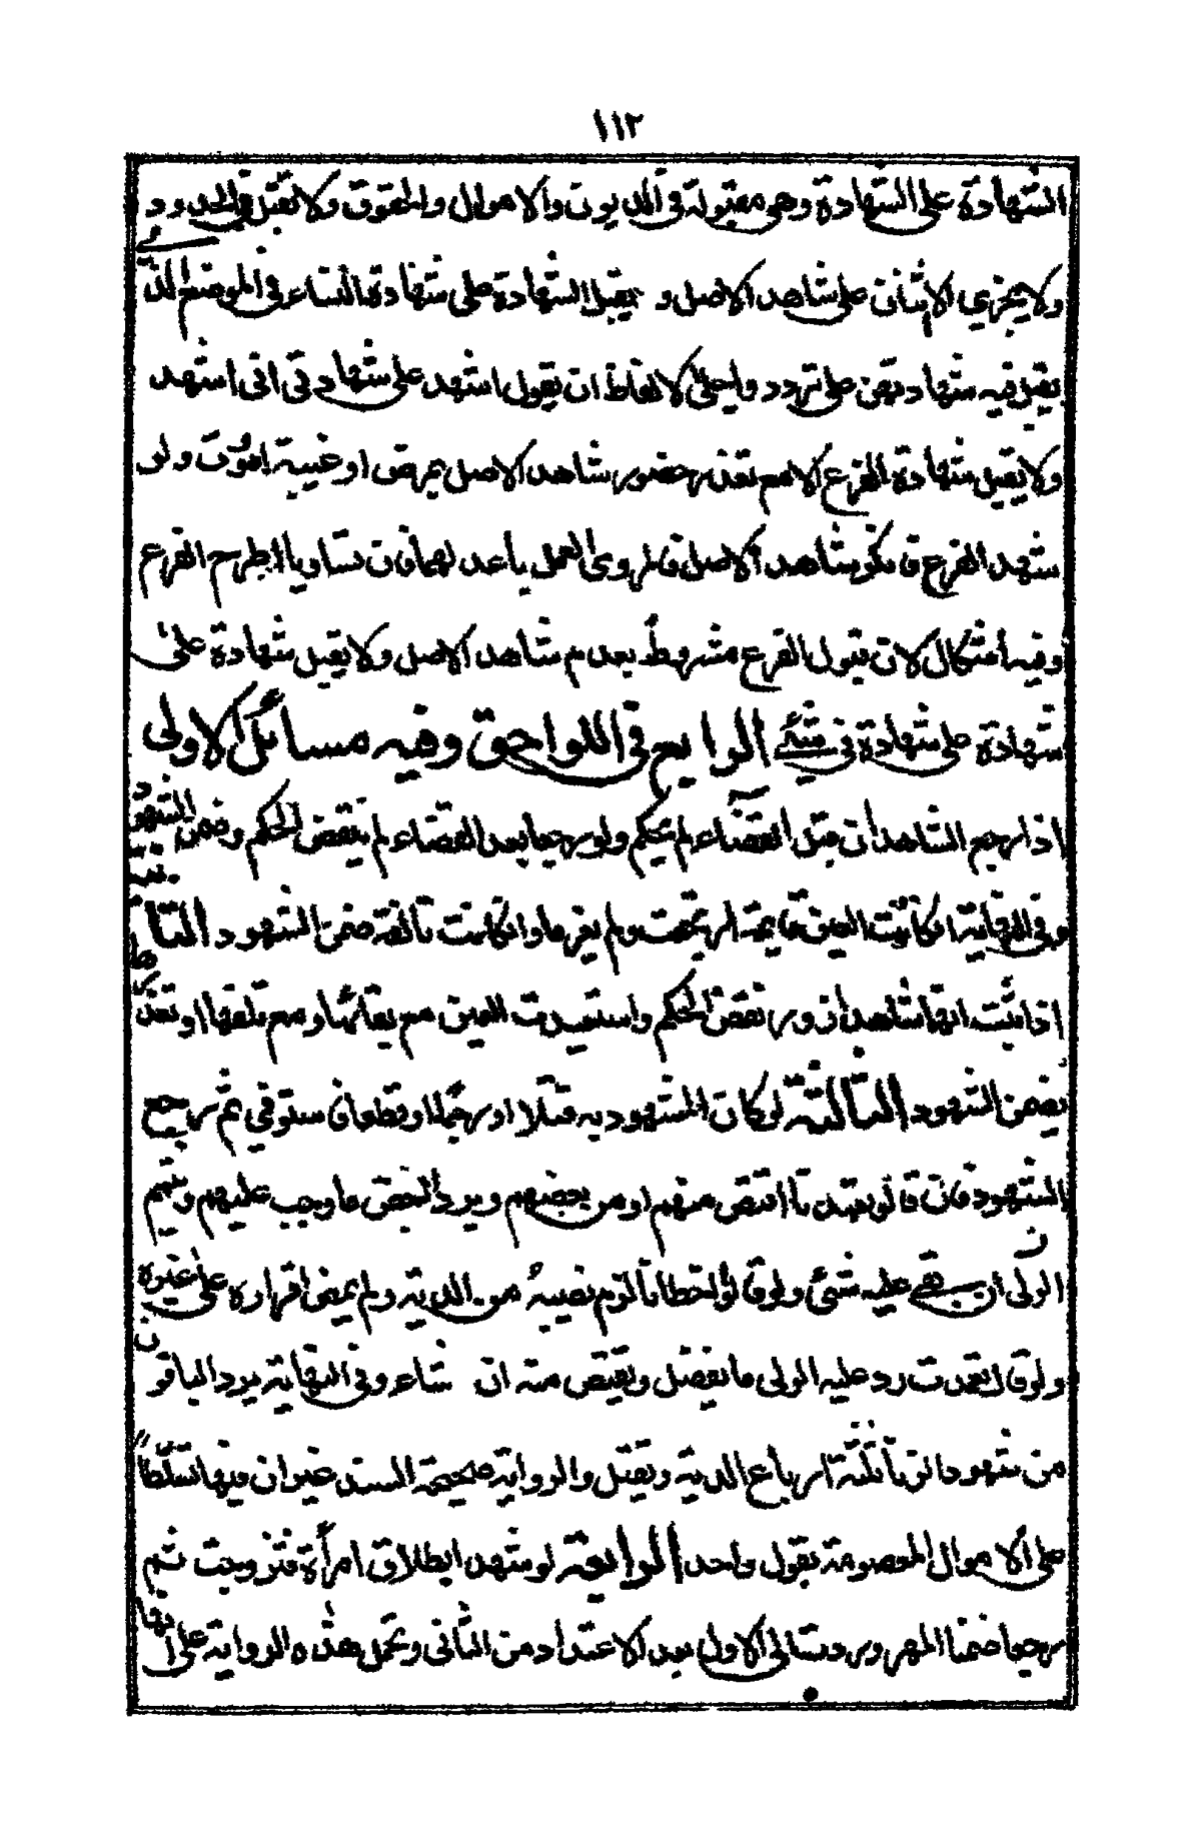 ١١٢
الشهادة على الشهادة وهي مقبولة في الديون والاموال والحقوق ولا تقبل في الحدود
ولا يجزي الا اثنان على شاهد الاصل و يقبل الشهادة على شهادة النساء في الموضع الذي
يقبل فيه شهادتهن على تردد واجلى الالفاظ ان يقول اشهد على شهادتي اني اشهد
ولا يقبل شهادة الفرع الا مع تعذر حضور شاهد الاصل بمرض او غيبة او موت ولو
شهد الفرع فانكر شاهد الاصل فالمروى العمل باعدلهما فان تساويا اطرح الفرع
وفيه اشكال لان قبول الفرع مشروط بعدم شاهد الاصل ولا يقبل شهادة على
شهادة على شهادة في شئ الرابع في اللواحق وفيه مسائل الاولى
اذا رجع الشاهدان قبل القضاء لم يحكم ولو رجعا بعد القضاء لم ينقض الحكم وضمن الشهود
وفي النهاية ان كانت العين قايمة ارتجعت ولم يغرما وان كانت تالفة ضمن الشهود الثانية
اذا ثبت انهما شاهدا زور نقض الحكم واستعيدت العين مع بقائها ومع تلفها او تعذر
يضمن الشهود الثالثة لو كان المشهود به قتلا او رجما او قطعا فاستوفي ثم رجع
الشهود فان قالوا تعمدنا اقتص منهم او من بعضهم ويرد البعض ما وجب عليهم ويتم
الولى ان بقي عليه شئ ولو قالوا اخطأنا لزمهم نصيبه من الدية ولم يمض اقراره على غيره
ولو قال تعمدت رد عليه الولى ما يفضل ويقتص منه ان شاء وفي النهاية يرد الباقون
من شهود الزنا ثلثة ارباع الدية ويقتل والرواية صحيحة السند غير ان فيها تسلطا
على الاموال المعصومة بقول واحد الرابعة لو شهدا بطلاق امرأة فتزوجت ثم
رجعا ضمنا المهر وردت الى الاول بعد الاعتداد من الثاني وتحمل هذه الرواية على انها